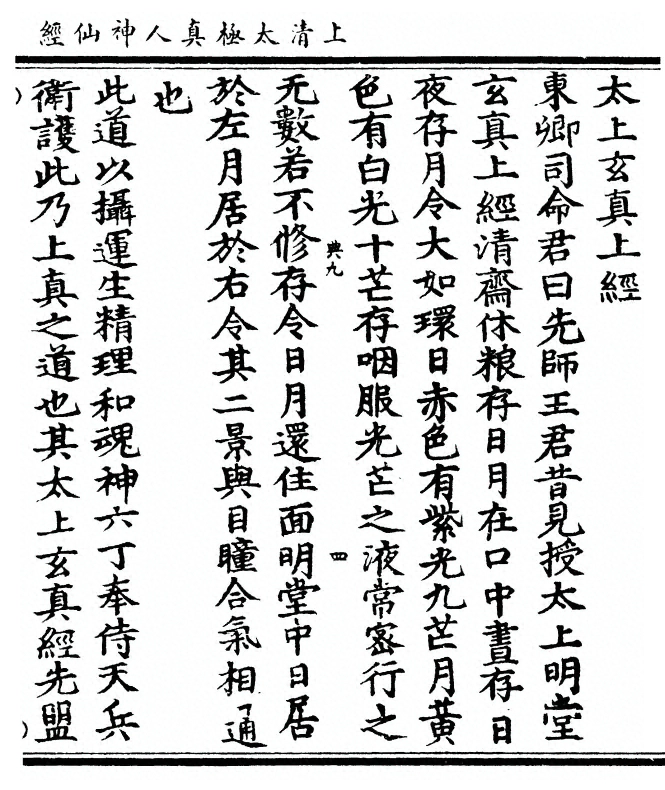 上清太極真人神仙經
太上玄真上經
東卿司命君曰先師王君昔見授太上明堂
玄真上經清齋休粮存日月在口中晝存日
夜存月令大如環日赤色有紫光九芒月黃
色有白光十芒存咽服光芒之液常宻行之
典九
四
无數若不修存令日月還住面明堂中日居
於左月居於右令其二景與目瞳合氣相通
也
此道以攝運生精理和魂神六丁奉侍天兵
衛護此乃上真之道也其太上玄真經先盟